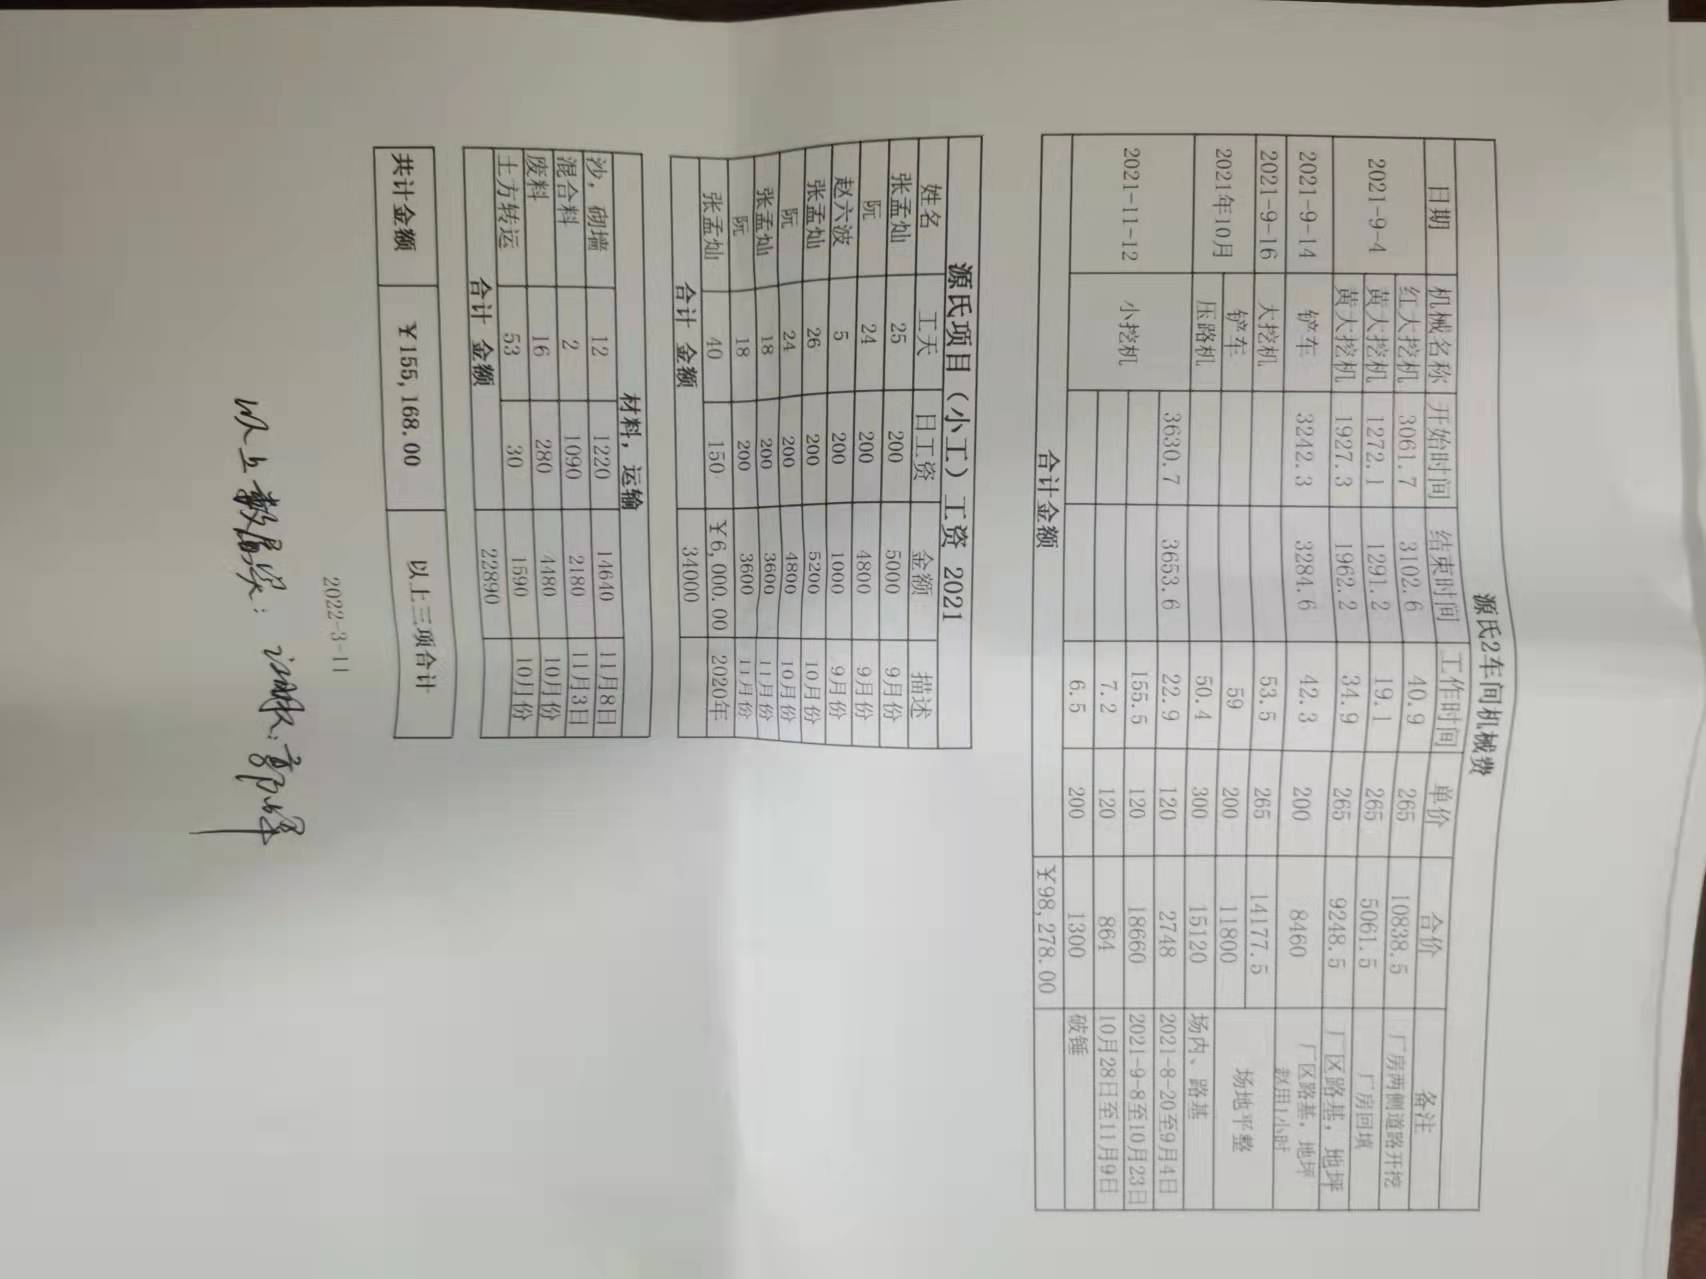 源氏2车间机械费
日期 机械名称 开始时间 结束时间 工作时间 单价 合价 备注
2021-9-4 红大挖机 3061.7 3102.6 40.9 265 10838.5 厂房两侧道路开挖
黄大挖机 1272.1 1291.2 19.1 265 5061.5 厂房回填
黄大挖机 1927.3 1962.2 34.9 265 9248.5 厂区路基，地坪
2021-9-14 铲车 3242.3 3284.6 42.3 200 8460 厂区路基，地坪
赵用1小时
2021-9-16 大挖机 53.5 265 14177.5 场地平整
2021年10月 铲车 59 200 11800
压路机 50.4 300 15120 场内、路基
2021-11-12 小挖机 3630.7 3653.6 22.9 120 2748 2021-8-20至9月4日
155.5 120 18660 2021-9-8至10月23日
7.2 120 864 10月28日至11月9日
6.5 200 1300 破锤
合计金额 ￥98,278.00
源氏项目（小工）工资 2021
姓名 工天 日工资 金额 描述
张孟灿 25 200 5000 9月份
阮 24 200 4800 9月份
赵六波 5 200 1000 9月份
张孟灿 26 200 5200 10月份
阮 24 200 4800 10月份
张孟灿 18 200 3600 11月份
阮 18 200 3600 11月份
张孟灿 40 150 ￥6,000.00 2020年
合计 金额 34000
材料，运输
沙，砌墙 12 1220 14640 11月8日
混合料 2 1090 2180 11月3日
废料 16 280 4480 10月份
土方转运 53 30 1590 10月份
合计 金额 22890
共计金额 ￥155,168.00 以上三项合计
2022-3-11
以上数